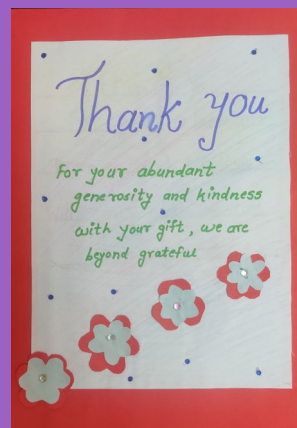 Thank you
For your abundant
generosity and kindness
with your gift, we are
beyond grateful